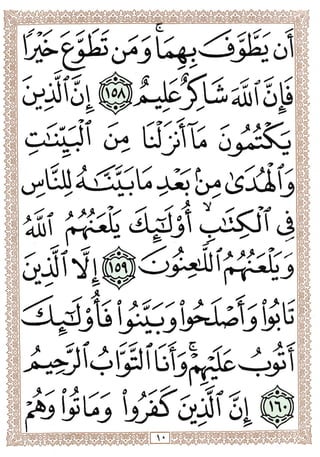 أَن يَطَّوَّفَ بِهِمَاۚ وَمَن تَطَوَّعَ خَيْرًا
فَإِنَّ ٱللَّهَ شَاكِرٌ عَلِيمٌ ١٥٨ إِنَّ ٱلَّذِينَ
يَكْتُمُونَ مَآ أَنزَلْنَا مِنَ ٱلْبَيِّنَٰتِ
وَٱلْهُدَىٰ مِنۢ بَعْدِ مَا بَيَّنَّٰهُ لِلنَّاسِ
فِى ٱلْكِتَٰبِۙ أُو۟لَٰٓئِكَ يَلْعَنُهُمُ ٱللَّهُ
وَيَلْعَنُهُمُ ٱللَّٰعِنُونَ ١٥٩ إِلَّا ٱلَّذِينَ
تَابُوا۟ وَأَصْلَحُوا۟ وَبَيَّنُوا۟ فَأُو۟لَٰٓئِكَ
أَتُوبُ عَلَيْهِمْۚ وَأَنَا ٱلتَّوَّابُ ٱلرَّحِيمُ
١٦٠ إِنَّ ٱلَّذِينَ كَفَرُوا۟ وَمَاتُوا۟ وَهُمْ
١٠